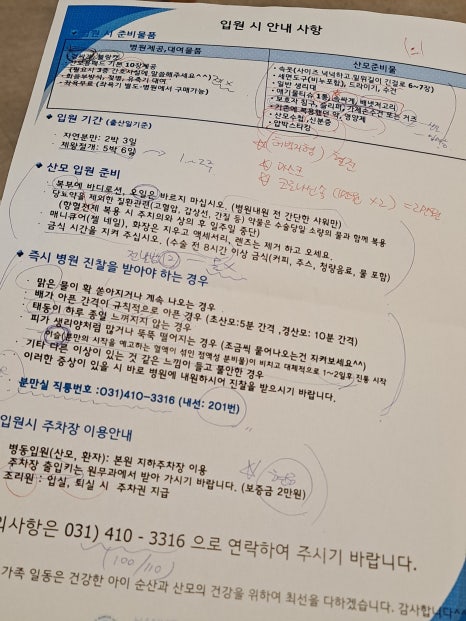 입원 시 안내 사항
입원 시 준비물품
병원제공,대여물품
산모준비물
산모용패드 기본 10장제공
(필요시 3층 간호사실에 말씀해주세요^^)
좌욕무료(좌욕기 별도-병원에서 구매가능)
속옷(사이즈 넉넉하고,밑위길이 긴걸로 6~7장)
세면도구(비누포함), 드라이기, 수건
일반 생리대
아기물티슈 1통, 속싸개, 배넷저고리
보호자 침구, 슬리퍼, 가제손수건 또는 거즈
기존에 복용했던 약, 영양제
산모수첩,신분증
압박스타킹
마스크
입원 기간 (출산일기준)
자연분만: 2박 3일
제왕절개: 5박 6일
1~2주
산모 입원 준비
복부에 바디로션, 오일은 바르지 마십시오. (병원내원 전 간단한 샤워만)
당뇨약을 제외한 질환관련(고혈압, 갑상선, 간질 등) 약물은 수술당일 소량의 물과 함께 복용
(항혈전제 복용 시 주치의와 상의 후 일주일 중단)
매니큐어(젤 네일), 화장은 지우고 액세서리, 렌즈는 제거 하고 오세요.
금식 시간을 지켜 주십시오. (수술 전 8시간 이상 금식(커피, 주스, 청량음료, 물 포함)
즉시 병원 진찰을 받아야 하는 경우
맑은 물이 확 쏟아지거나 계속 나오는 경우
배가 아픈 간격이 규칙적으로 아픈 경우 (초산모:5분 간격 ,경산모: 10분 간격)
태동이 하루 종일 느껴지지 않는 경우
피가 생리양처럼 많거나 뚝뚝 떨어지는 경우 (조금씩 묻어나오는건 지켜보세요^^)
이슬(분만의 시작을 예고하는 혈액이 섞인 점액성 분비물)이 비치고 대체적으로 1~2일후 진통 시작
기타 다른 이상이 있는 것 같은 느낌이 들고 불안한 경우
이러한 증상이 있을 시 바로 병원에 내원하시어 진찰을 받으시기 바랍니다.
분만실 직통번호 :031)410–3316 (내선: 201번)
입원시 주차장 이용안내
병동입원(산모, 환자): 본원 지하주차장 이용
주차장 출입키는 원무과에서 받아 가시기 바랍니다. (보증금 2만원)
조리원 : 입실, 퇴실 시 주차권 지급
의사항은 031) 410 - 3316 으로 연락하여 주시기 바랍니다.
(100/110)
가족 일동은 건강한 아이 순산과 산모의 건강을 위하여 최선을 다하겠습니다. 감사합니다^^